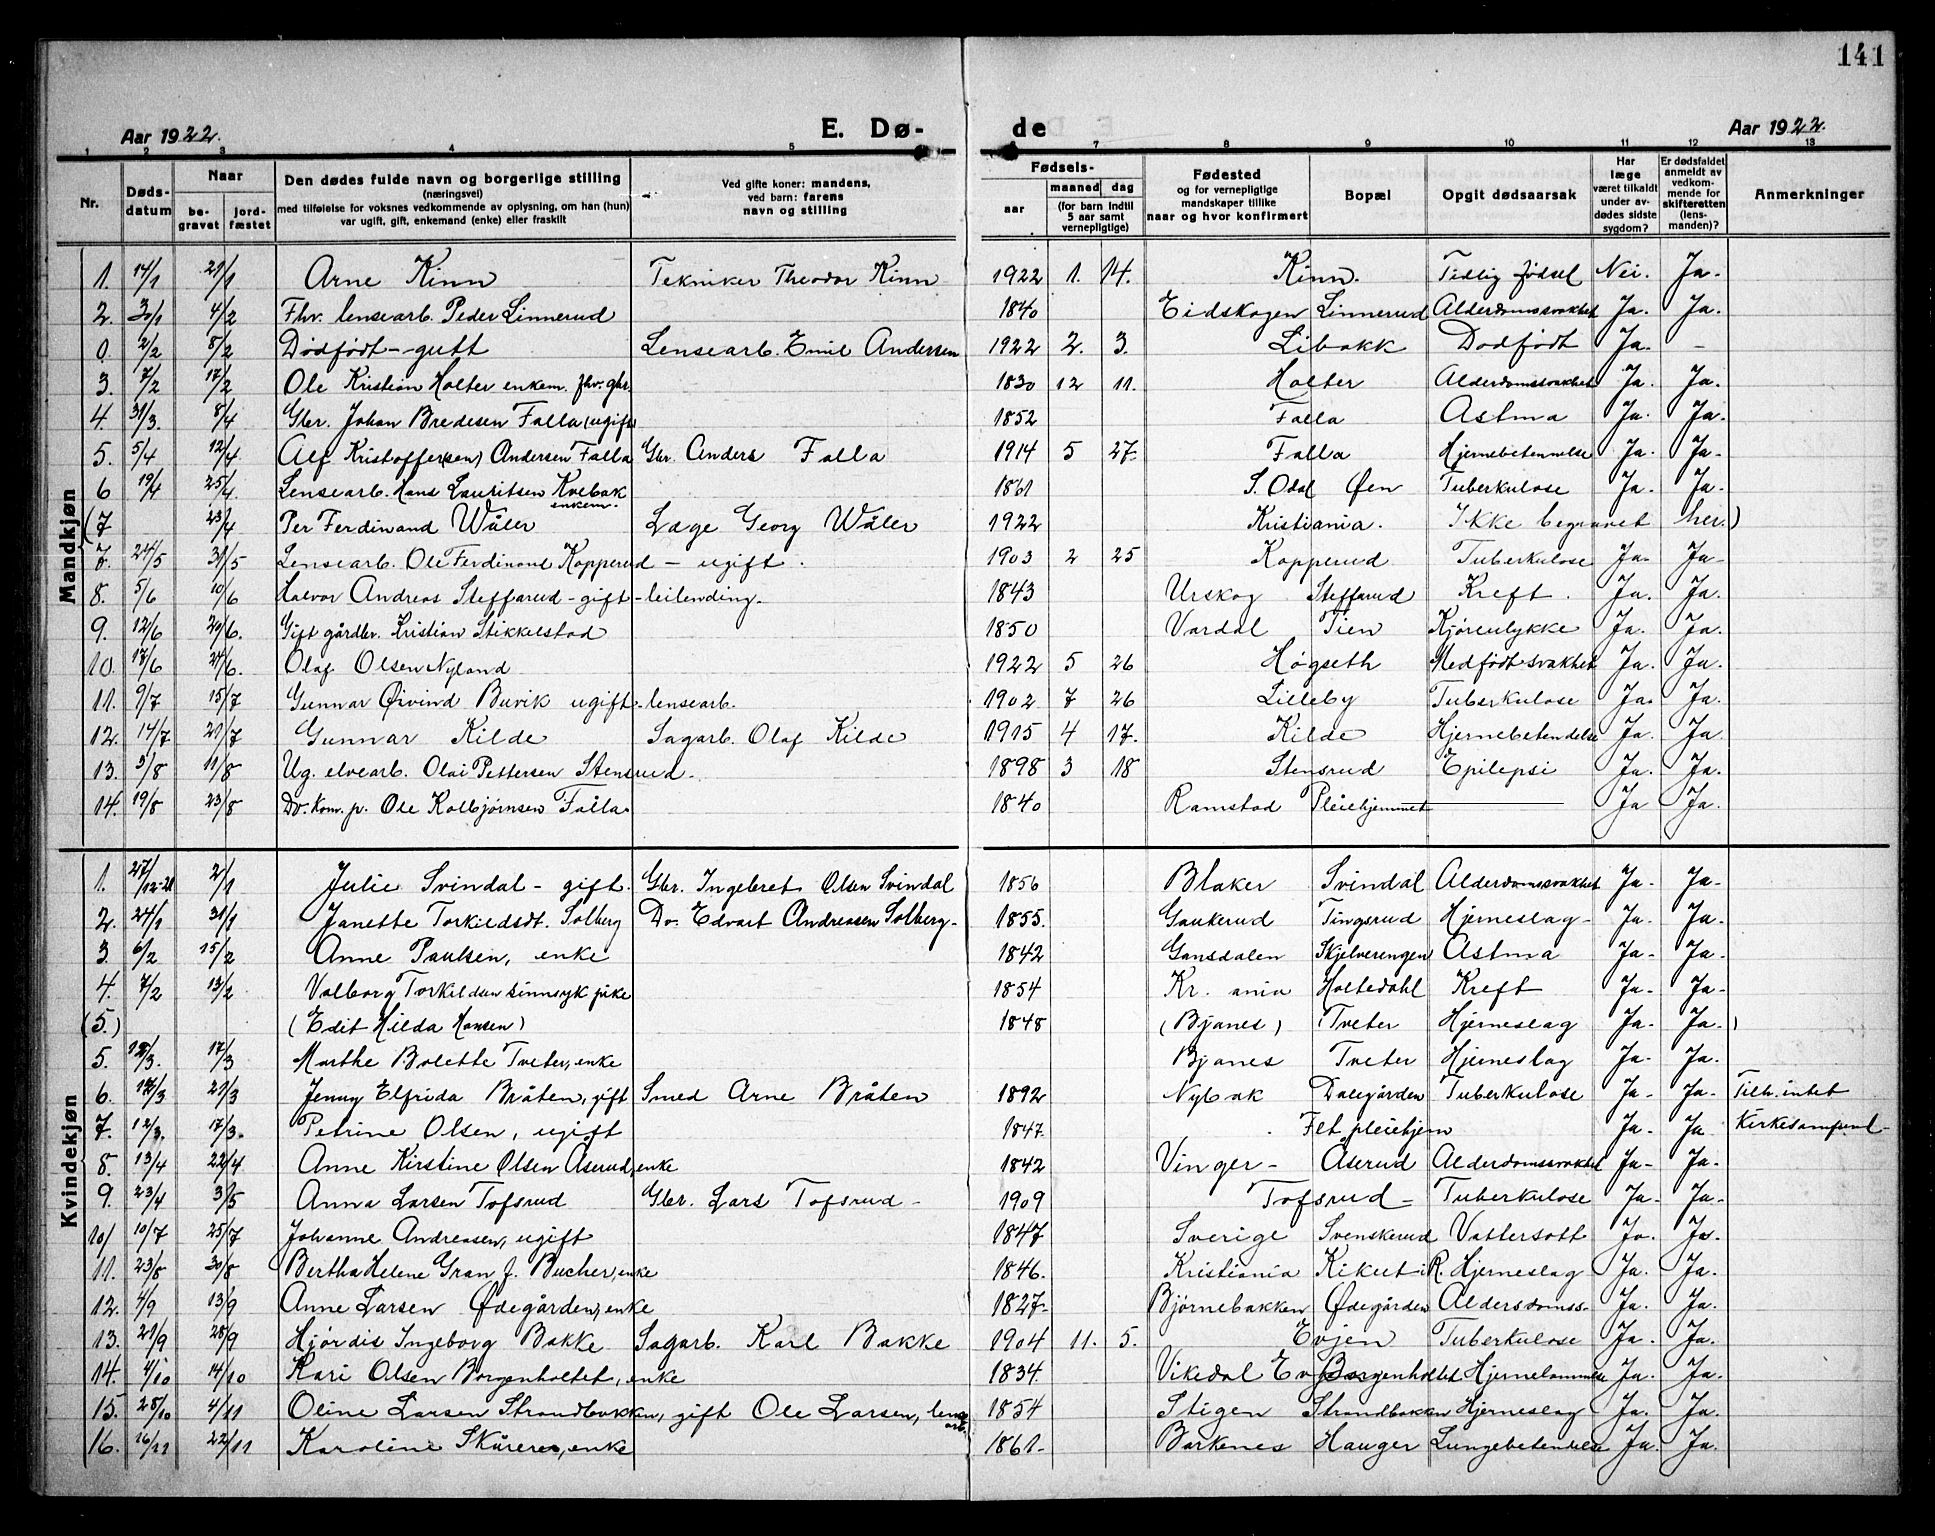 141
Aar 1922. E. Dø- de Aar 1922.
1 2 3 4 5 6 7 8 9 10 11 12 13
Nr. Døds-datum Naar be-gravet jord-fæstet Den dødes fulde navn og borgerlige stilling (næringsvei) med tilføielse for voksnes vedkommende av oplysning, om han (hun) var ugift, gift, enkemand (enke) eller fraskilt Ved gifte koner: mandens, ved barn: farens navn og stilling Fødsels- aar maaned dag (for barn indtil 5 aar samt vernepligtige) Fødested og for vernepligtige mandskaper tillike naar og hvor konfirmert Bopæl Opgit dødsaarsak Har læge været tilkaldt under av-dødes sidste sygdom? Er dødsfaldet anmeldt av vedkom-mende for skifteretten (lens-manden)? Anmerkninger
Mandkjøn
1. 14/1 21/1 Arne Kinn Tekniker Theodor Kinn 1922 1. 14. Kinn. Tidlig fødsel Nei. Ja.
2. 30/1 4/2 Fhv. lensearb. Peder Linnerud 1840 Eidskogen Linnerud Alderdomssvakhet Ja. Ja.
0. 2/2 8/2 Dødfødt - gutt Lensearb. Emil Andersen 1922 2. 3. Libakk Dødfødt Ja. -
3. 7/2 17/2 Ole Kristian Holter enkem. fhv. gbr. 1830 12 11. Holter Alderdomssvakhet Ja. Ja.
4. 31/3 8/4 Gbr. Johan Bredesen Falla (ugift) 1852 Falla Astma Ja. Ja.
5. 5/4 12/4 Alf Kristoffer(sen) Andersen Falla Gbr. Anders Falla 1914 5 27. Falla Hjernebetennelse Ja. Ja.
6 19/4 25/4. Lensearb. Hans Lauritsen Kvebak enkem. 1861 S. Odal Øen Tuberkulose Ja. Ja.
(7 23/4 Per Ferdinand Wåler Læge Georg Wåler 1922 Kristiania. Ikke begravet her.)
7. 24/5 31/5 Lensearb. Ole Ferdinand Kopperud - ugift. 1903 2 25 Kopperud Tuberkulose Ja. Ja.
8. 5/6 10/6 Halvor Andreas Steffarud - gift - leilending. 1843 Urskog Steffarud Kreft. Ja. Ja.
9. 12/6 20/6. Gift gårdbr. Kristian Stikkelstad 1850 Vardal Tien Kjøreulykke Ja. Ja.
10. 17/6 24/6. Olaf Olsen Nyland 1922 5 26 Høgseth Medfødt svakhet Ja. Ja.
11. 9/7 15/7 Gunnar Øivind Buvik ugift - lensearb. 1902 7 26 Lilleby Tuberkulose Ja. Ja.
12. 14/7 21/7 Gunnar Kilde Sagarb. Olaf Kilde 1915 4 17. Kilde Hjernebetendelse Ja. Ja.
13. 5/8 11/8 Ug. elvearb. Olai Pettersen Stensrud. 1898 3 18 Stensrud Epilepsi Ja. Ja.
14. 19/8 23/8 Dv. kom. p. Ole Kolbjørnsen Falla. 1840 Ramstad Pleiehjemmet Ja Ja.
Kvindekjøn
1. 27/12-21 2/1 Julie Svindal - gift. Gbr. Ingebret Olsen Svindal 1856 Blaker Svindal Alderdomssvakhet Ja. Ja.
2. 24/1 31/1 Janette Torkildsdt. Solberg Dv. Edvart Andreasen Solberg. 1855. Gaukerud Tingsrud Hjerneslag - Ja. Ja.
3. 6/2 15/2 Anne Paulsen, enke 1842 Gansdalen Skjelverengen Astma Ja. Ja.
4. 7/2 13/2 Valborg Torkildsen sinnsyk pike 1854 Kr. ania Holtedahl Kreft Ja. Ja.
(5.) (Edit Hilda Hansen) 1848 (Bjanes) Tveter Hjerneslag Ja. Ja. )
5. 17/3 Marthe Bolette Tveter, enke Bjanes Tveter Hjerneslag Ja. Ja.
6. 21/3 Jenny Elfrida Bråten, gift Smed Arne Bråten 1892 Nybak Dalegården Tuberkulose Ja. Ja. Tilh. intet
7. 12/3. 17/3. Petrine Olsen, ugift 1847. Fet pleiehjem Ja. Ja Kirkesamfund -
8. 13/4 22/4 Anne Kirstine Olsen Åserud, enke 1842 Vinger - Åserud Alderdomssvakhet Ja. Ja.
9. 23/4 3/5 Anna Larsen Tofsrud Gbr. Lars Tofsrud - 1909 Tofsrud - Tuberkulose Ja. Ja.
10/ 10/7 25/7 Johanne Andreasen, ugift 1847 Sverige Svenskerud Vattersott Ja. Ja.
11. 23/8 30/8 Bertha Helene Gran f. Bucher, enke 1846. Kristiania Kikut i R. Hjerneslag Ja. Ja.
12. 4/9 13/9 Anne Larsen Ødegården, enke 1827. Bjørnebakken Ødegården Aldersdomss. Ja. Ja.
13. 21/9 28/9 Hjørdis Ingeborg Bakke Sagarb. Karl Bakke 1904 11. 5. Evjen Tuberkulose Ja. Ja.
14. 4/10 14/10 Kari Olsen Borgenholtet, enke 1834. Vikedal Ev Borgenholtet Hjernelammelse Ja. Ja.
15. 28/10 4/11 Oline Larsen Strandbakken, gift Ole Larsen, lense arb. 1854 Stigen Strandbakken Hjerneslag Ja. Ja.
16. 16/11 22/11 Karoline Skårer, enke 1861. Barkenes Hauger Lungebetendelse Ja. Ja.